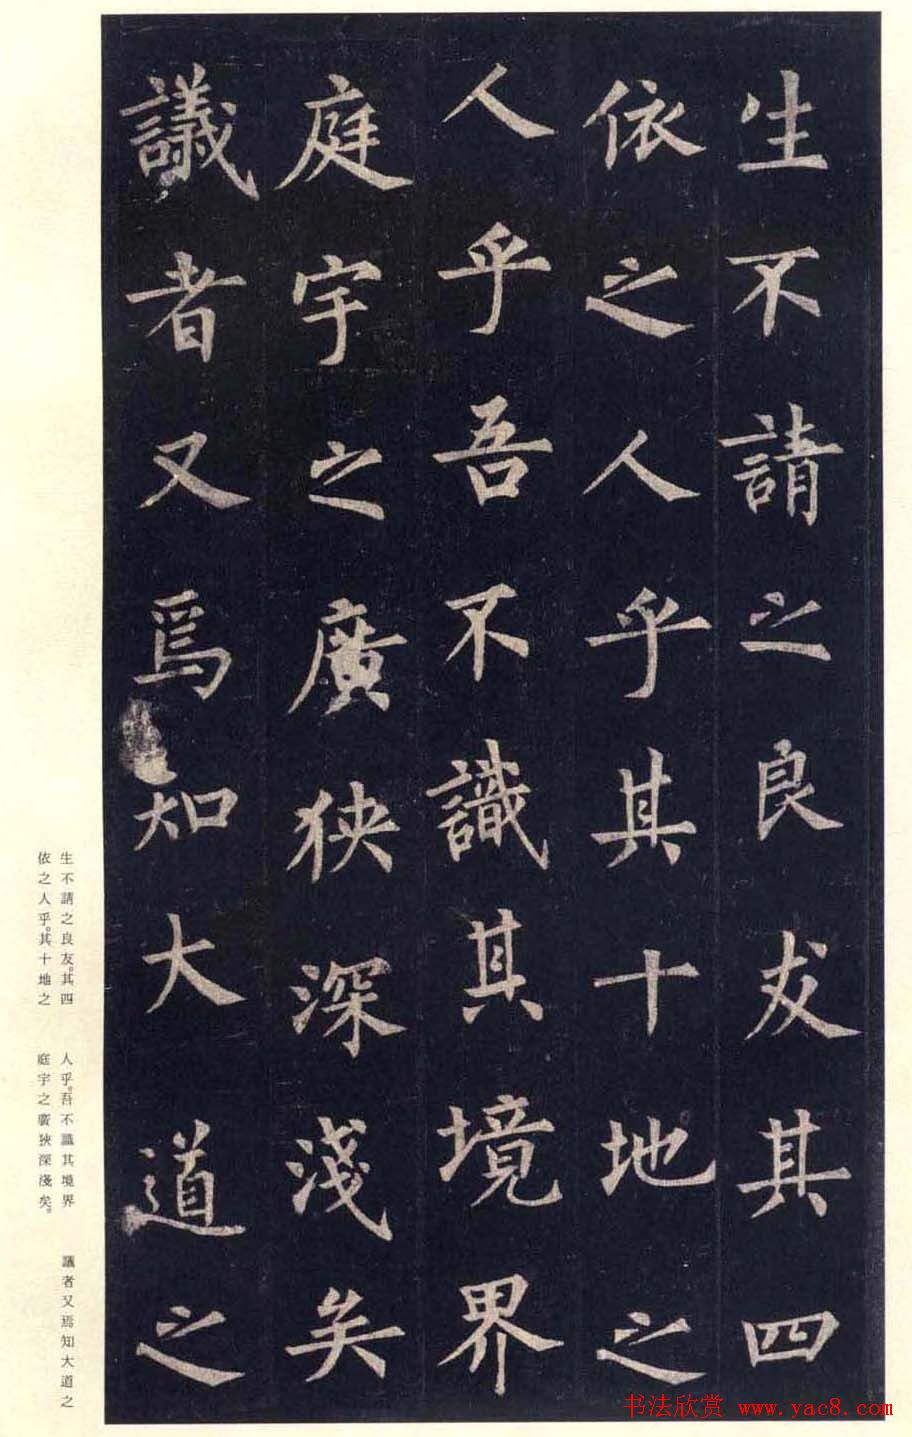 生不請之良友其四
依之人乎其十地之
人乎吾不識其境界
庭宇之廣狹深淺矣
議者又焉知大道之
生不請之良友。其四
依之人乎。其十地之
人乎。吾不識其境界
庭宇之廣狹深淺矣。
議者又焉知大道之
书法欣赏 www.yac8.com